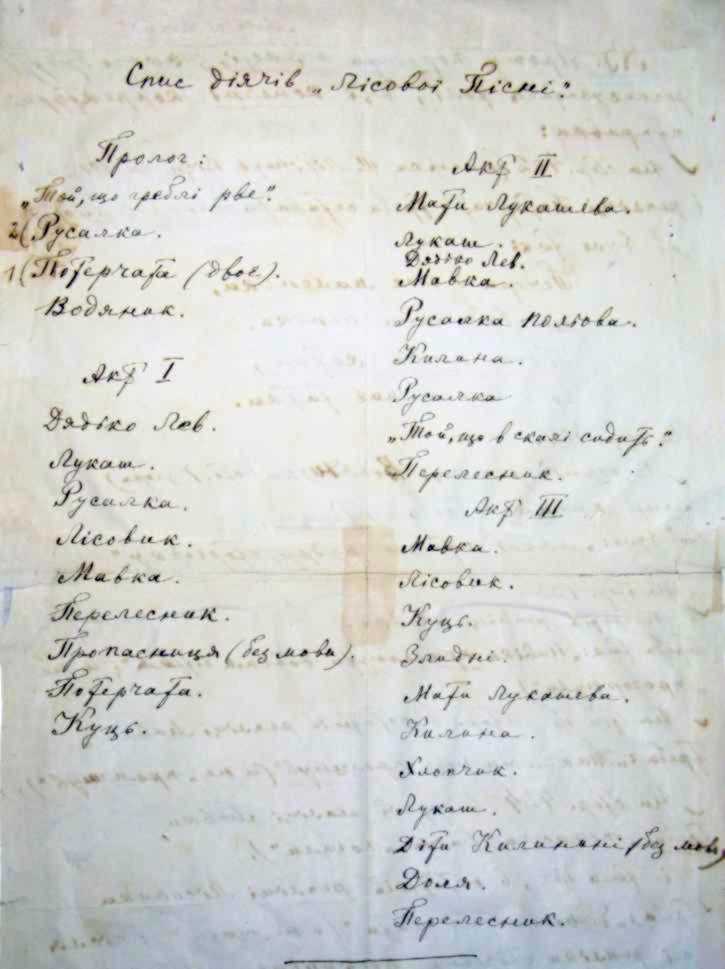 Спис діячів „Лісової Пісні".
Пролог:
„Той, що греблі рве".
2( Русалка.
1( Потерчата (двоє).
Водяник.
Акт I
Дядько Лев.
Лукаш.
Русалка.
Лісовик.
Мавка.
Перелесник.
Пропасниця (без мови).
Потерчата.
Куць.
Акт II
Мати Лукашева.
Лукаш.
Дядько Лев.
Мавка.
Русалка польова.
Килина.
Русалка
„Той, що в скалі сидить".
Перелесник.
Акт III
Мавка.
Лісовик.
Куць.
Злидні.
Мати Лукашева.
Килина.
Хлопчик.
Лукаш.
Діти Килинині (без мови)
Доля.
Перелесник.